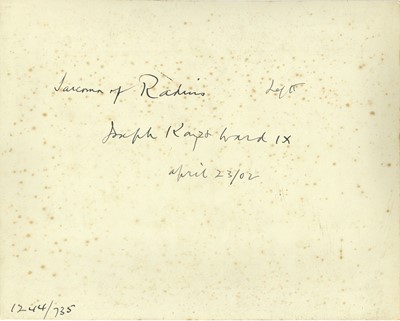 Sarcoma of Radius Left
Joseph Ward IX
April 23/02
1244/735